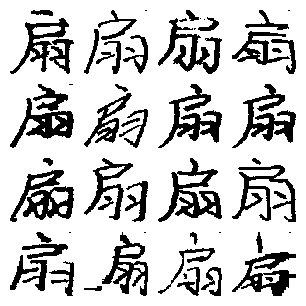 扇扇扇扇
扇扇扇扇
扇扇扇扇
扇扇扇扇